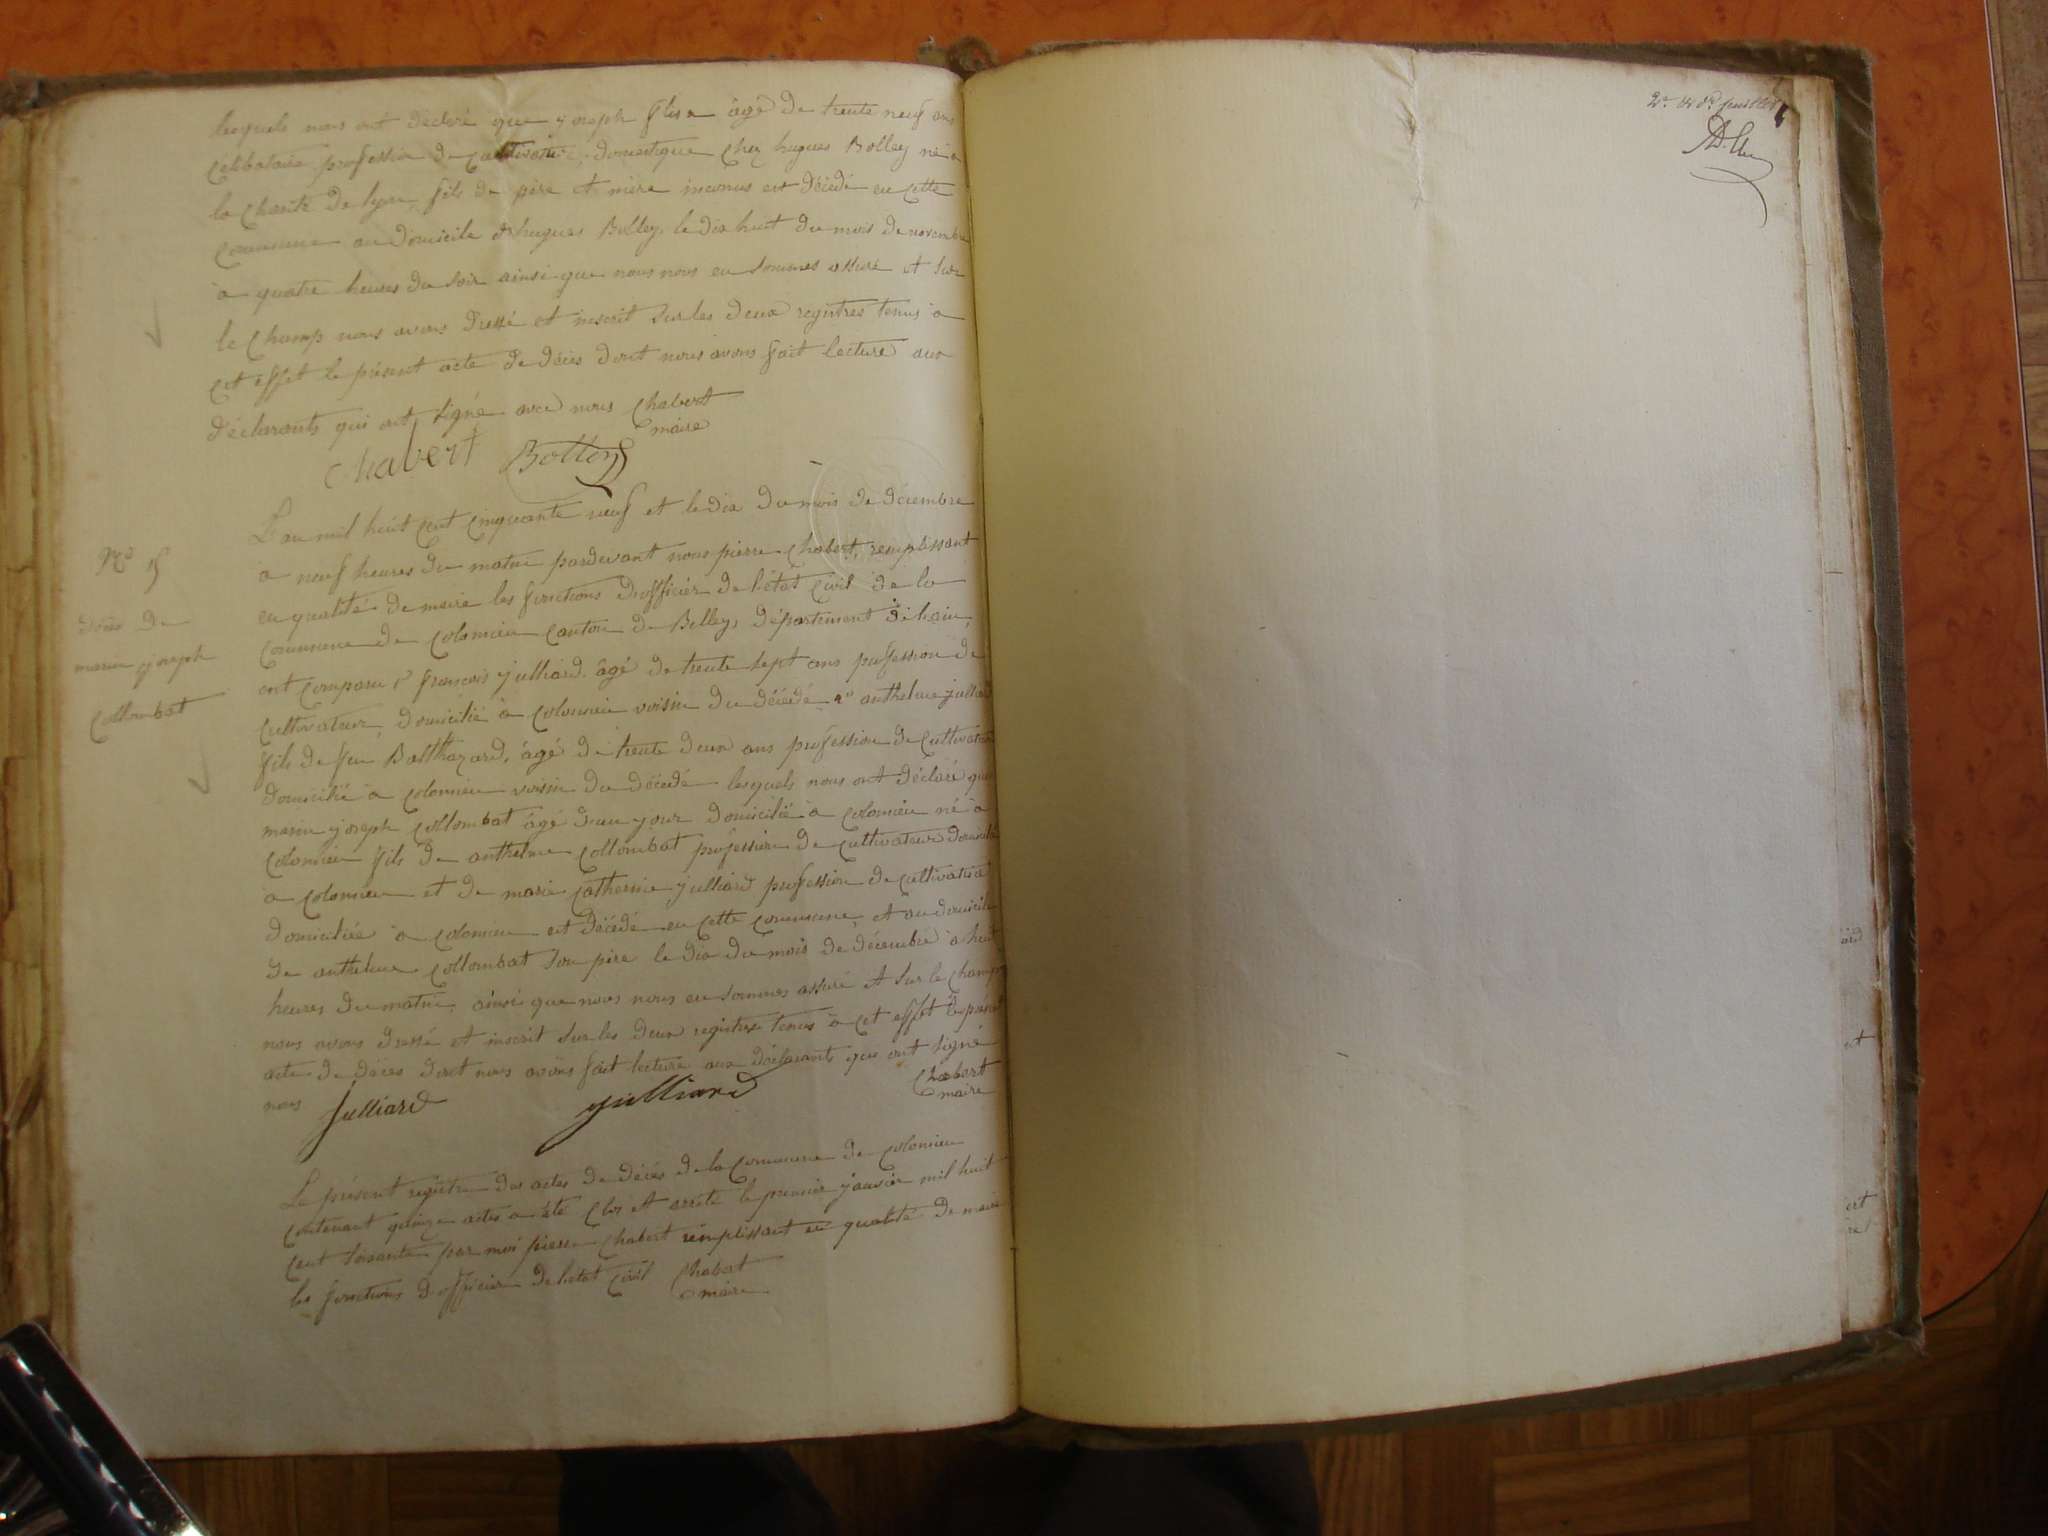 lesquels nous ont déclaré que joseph âgé de trente neuf ans
célibataire profession de cultivateur, domestique chez hugues Bolley né à
la charité de lyon, fils de père et mère inconus est décédé en cette
commune au domicile d'hugues Bolley, le dix huit du mois de novembre
à quatre heures du soir ainsi que nous nous en sommes assuré et sur
le champ nous avons dressé et inscrit sur les deux registres tenus à
cet effet le présent acte de décès dont nous avons fait lecture aux
déclarants qui ont signé avec nous Chabert
maire
Chabert Bolley
L'an mil huit cent cinquante neuf et le dix du mois de décembre
à neuf heures du matin pardevant nous pierre Chabert, remplissant
en qualité de maire les fonctions d'officier de l'état civil de la
commune de Colomieu canton de Belley, département de l'ain,
ont comparu 1° francois julliard âgé de trente sept ans profession de
cultivateur, domicilié à colomieu voisin du décédé 2° anthelme julliard
fils de feu Balthazard, âgé de trente deux ans profession de cultivateur
domicilié à colomieu voisin du décédé lesquels nous ont déclaré que
marin joseph Collombat âgé d'un jour domicilié à colomieu né à
Colomieu fils de anthelme Collombat profession de cultivateur domicilié
à colomieu et de marie catherine julliard profession de cultivatrice
domiciliée à colomieu est décédé en cette commune, et au domicile
de anthelme Collombat son père le dix du mois de décembre à huit
heures du matin, ainsi que nous nous en sommes assuré et sur le champ
nous avons dressé et inscrit sur les deux registres tenus à cet effet le présent
acte de décès dont nous avons fait lecture aux déclarants qui ont signé
nous Julliard julliard Chabert
maire
N° 15
décès de
marin joseph
Collombat
Le présent registre des actes de décès de la commune de Colomieu
contenant quinze actes a été clos et arrêté le premier janvier mil huit
cent soixante par moi pierre Chabert remplissant en qualité de maire
les fonctions d'officier de l'état civil Chabert
maire
2e et dr feuillet